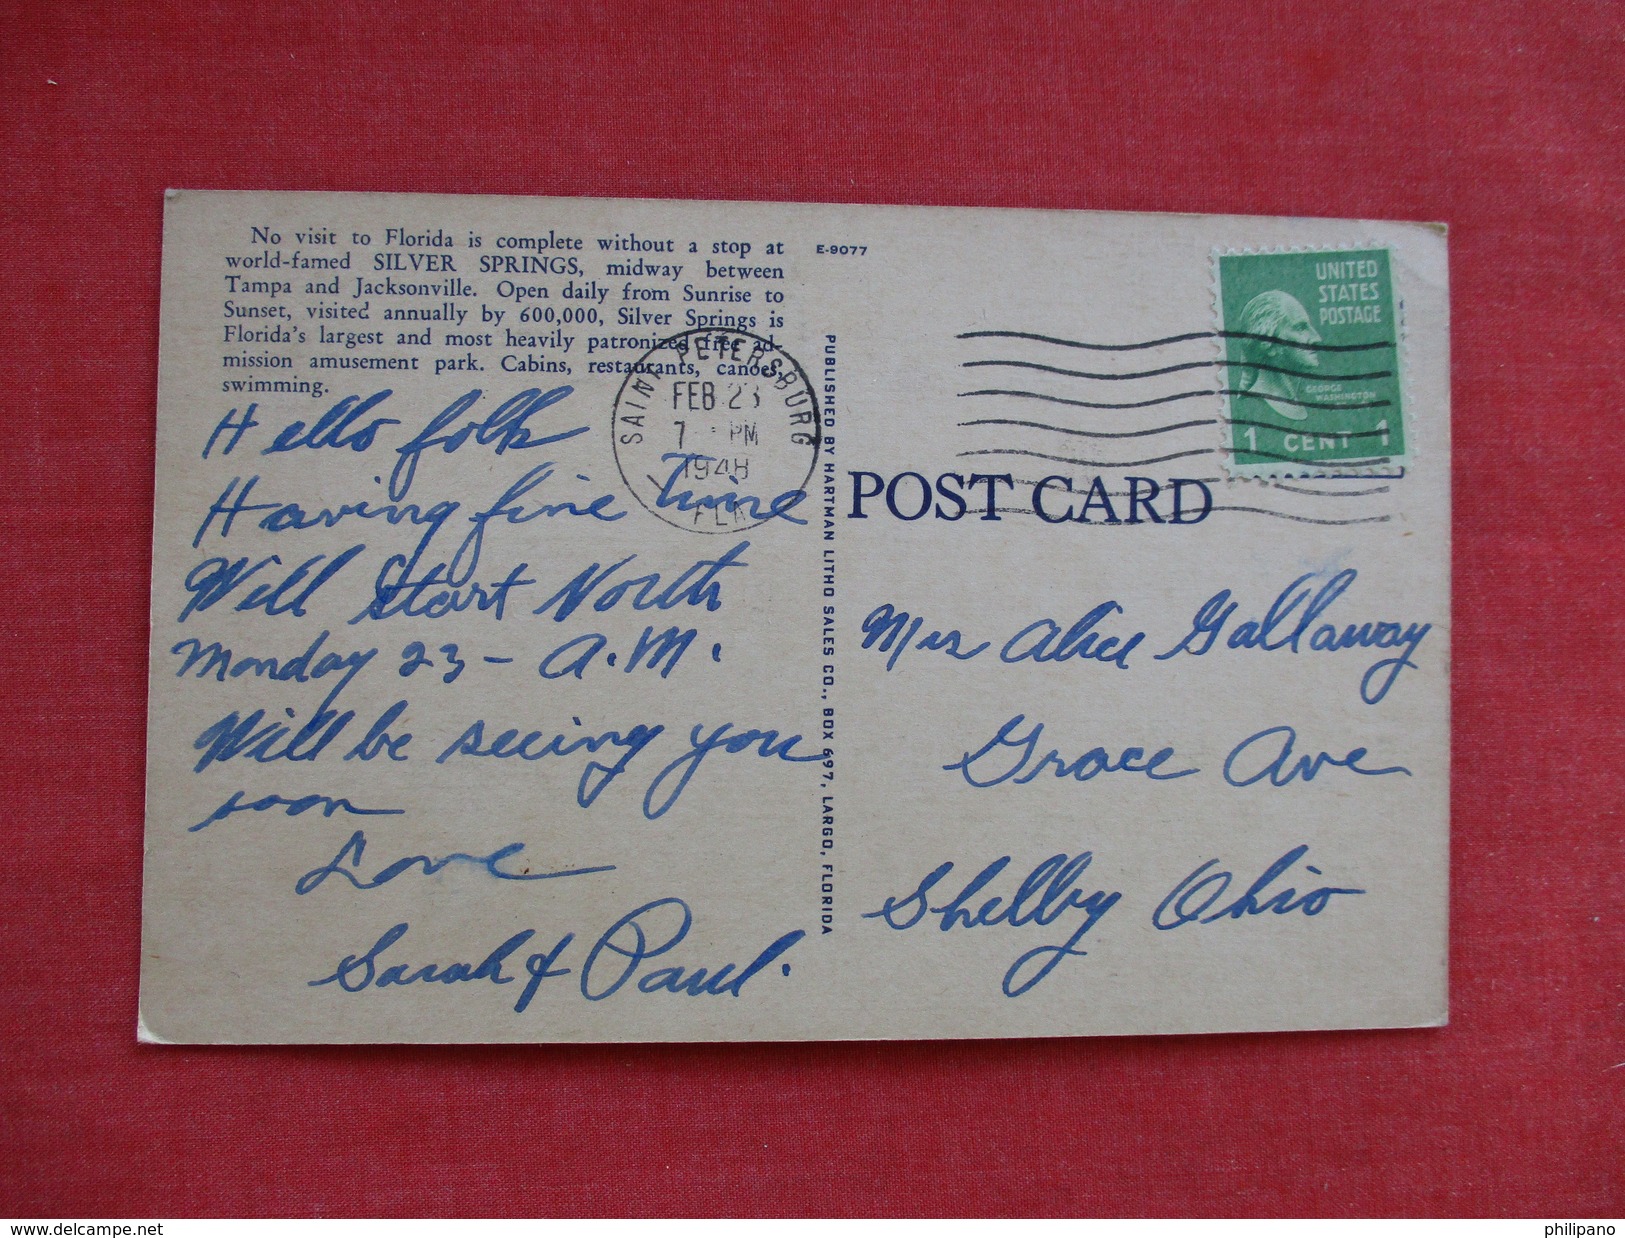 No visit to Florida is complete without a stop at
world-famed SILVER SPRINGS, midway between
Tampa and Jacksonville. Open daily from Sunrise to
Sunset, visited annually by 600,000, Silver Springs is
Florida's largest and most heavily patronized free ad-
mission amusement park. Cabins, restaurants, canoes,
swimming.
Hello folk
Having fine Time
Will Start North
Monday 23 - A.M.
Will be seeing you
soon
Love
Sarah & Paul.
E-9077
PUBLISHED BY HARTMAN LITHO SALES CO., BOX 697, LARGO, FLORIDA
SAINT PETERSBURG
FEB 23
7 PM
1948
FLA
UNITED
STATES
POSTAGE
GEORGE
WASHINGTON
1 CENT 1
POST CARD
Mrs Alice Gallaway
Grace Ave
Shelby Ohio
www.delcampe.net
philipano